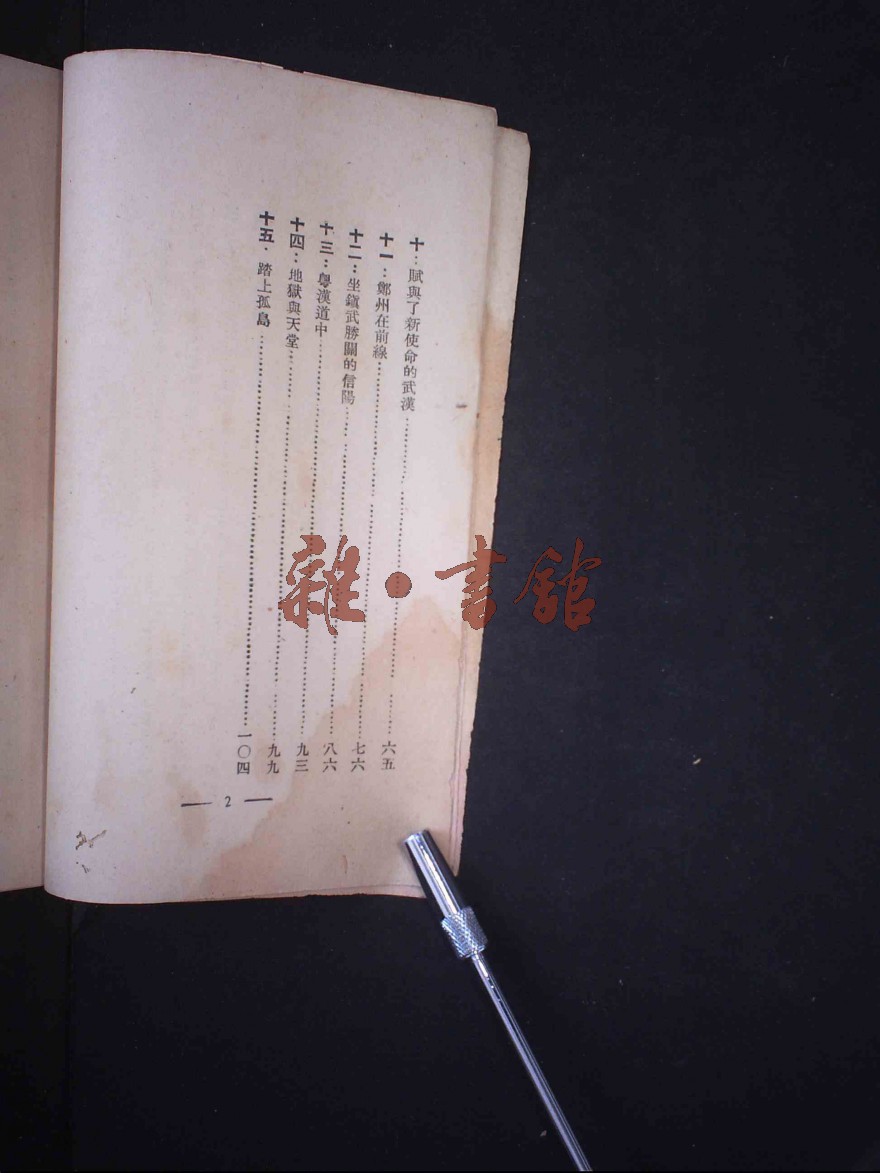 十：賦與了新使命的武漢……六五
十一：鄭州在前線……七六
十二：坐鎭武勝關的信陽……八六
十三：粵漢道中……九三
十四：地獄與天堂……九九
十五．踏上孤島……一〇四
— 2 —
雜·書館